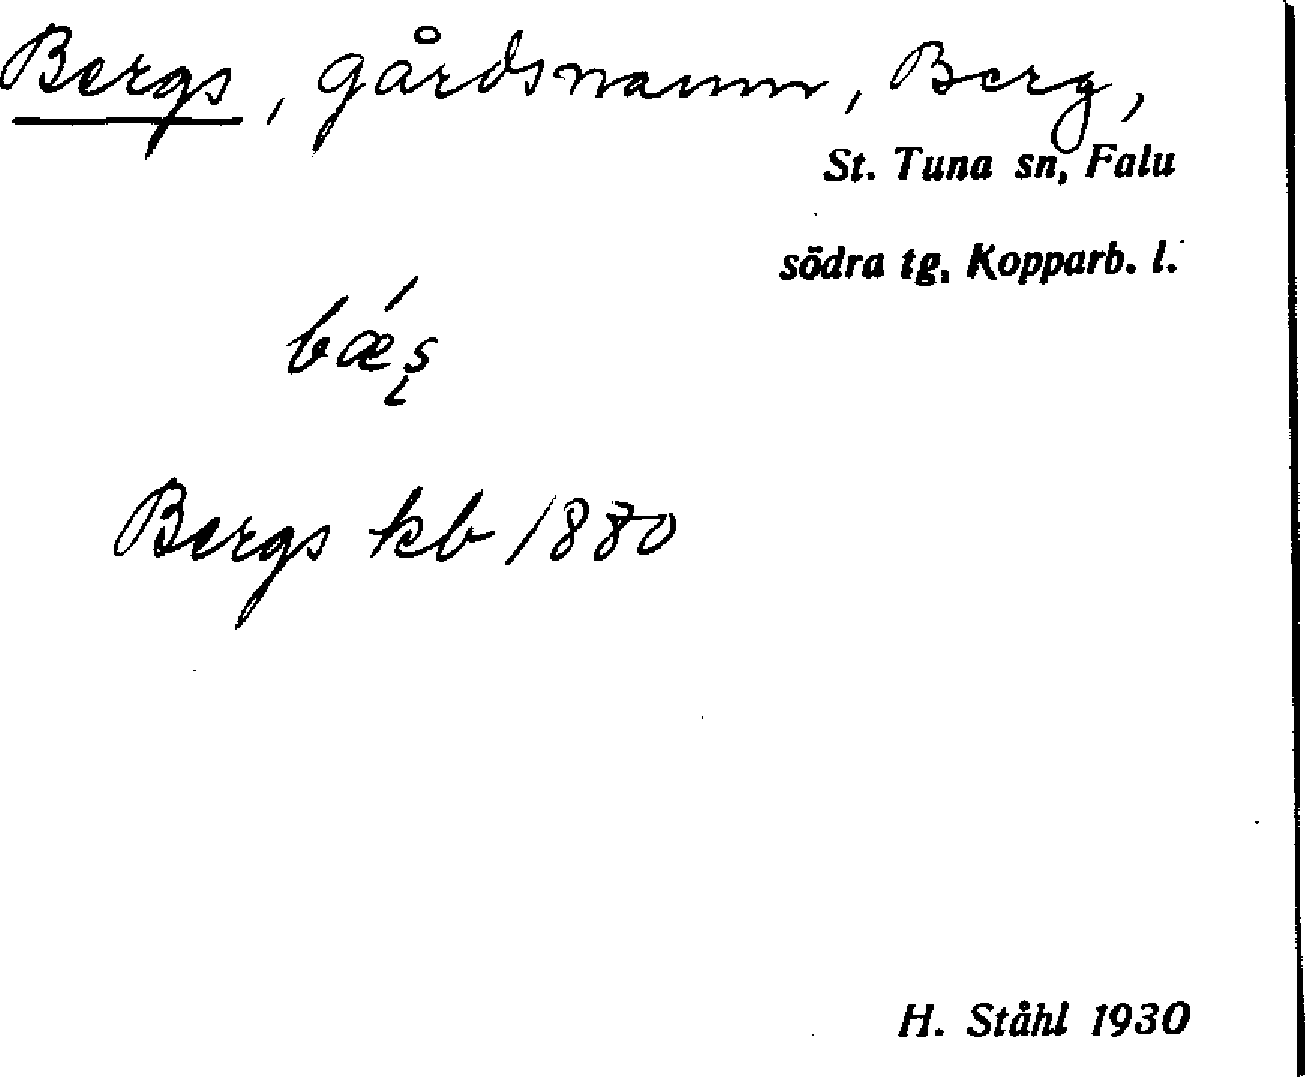 Bergs, gårdsnamn, Berg,
St. Tuna sn, Falu
södra tg, Kopparb. l.
bǽş
Bergs kb 1880
H. Ståhl 1930